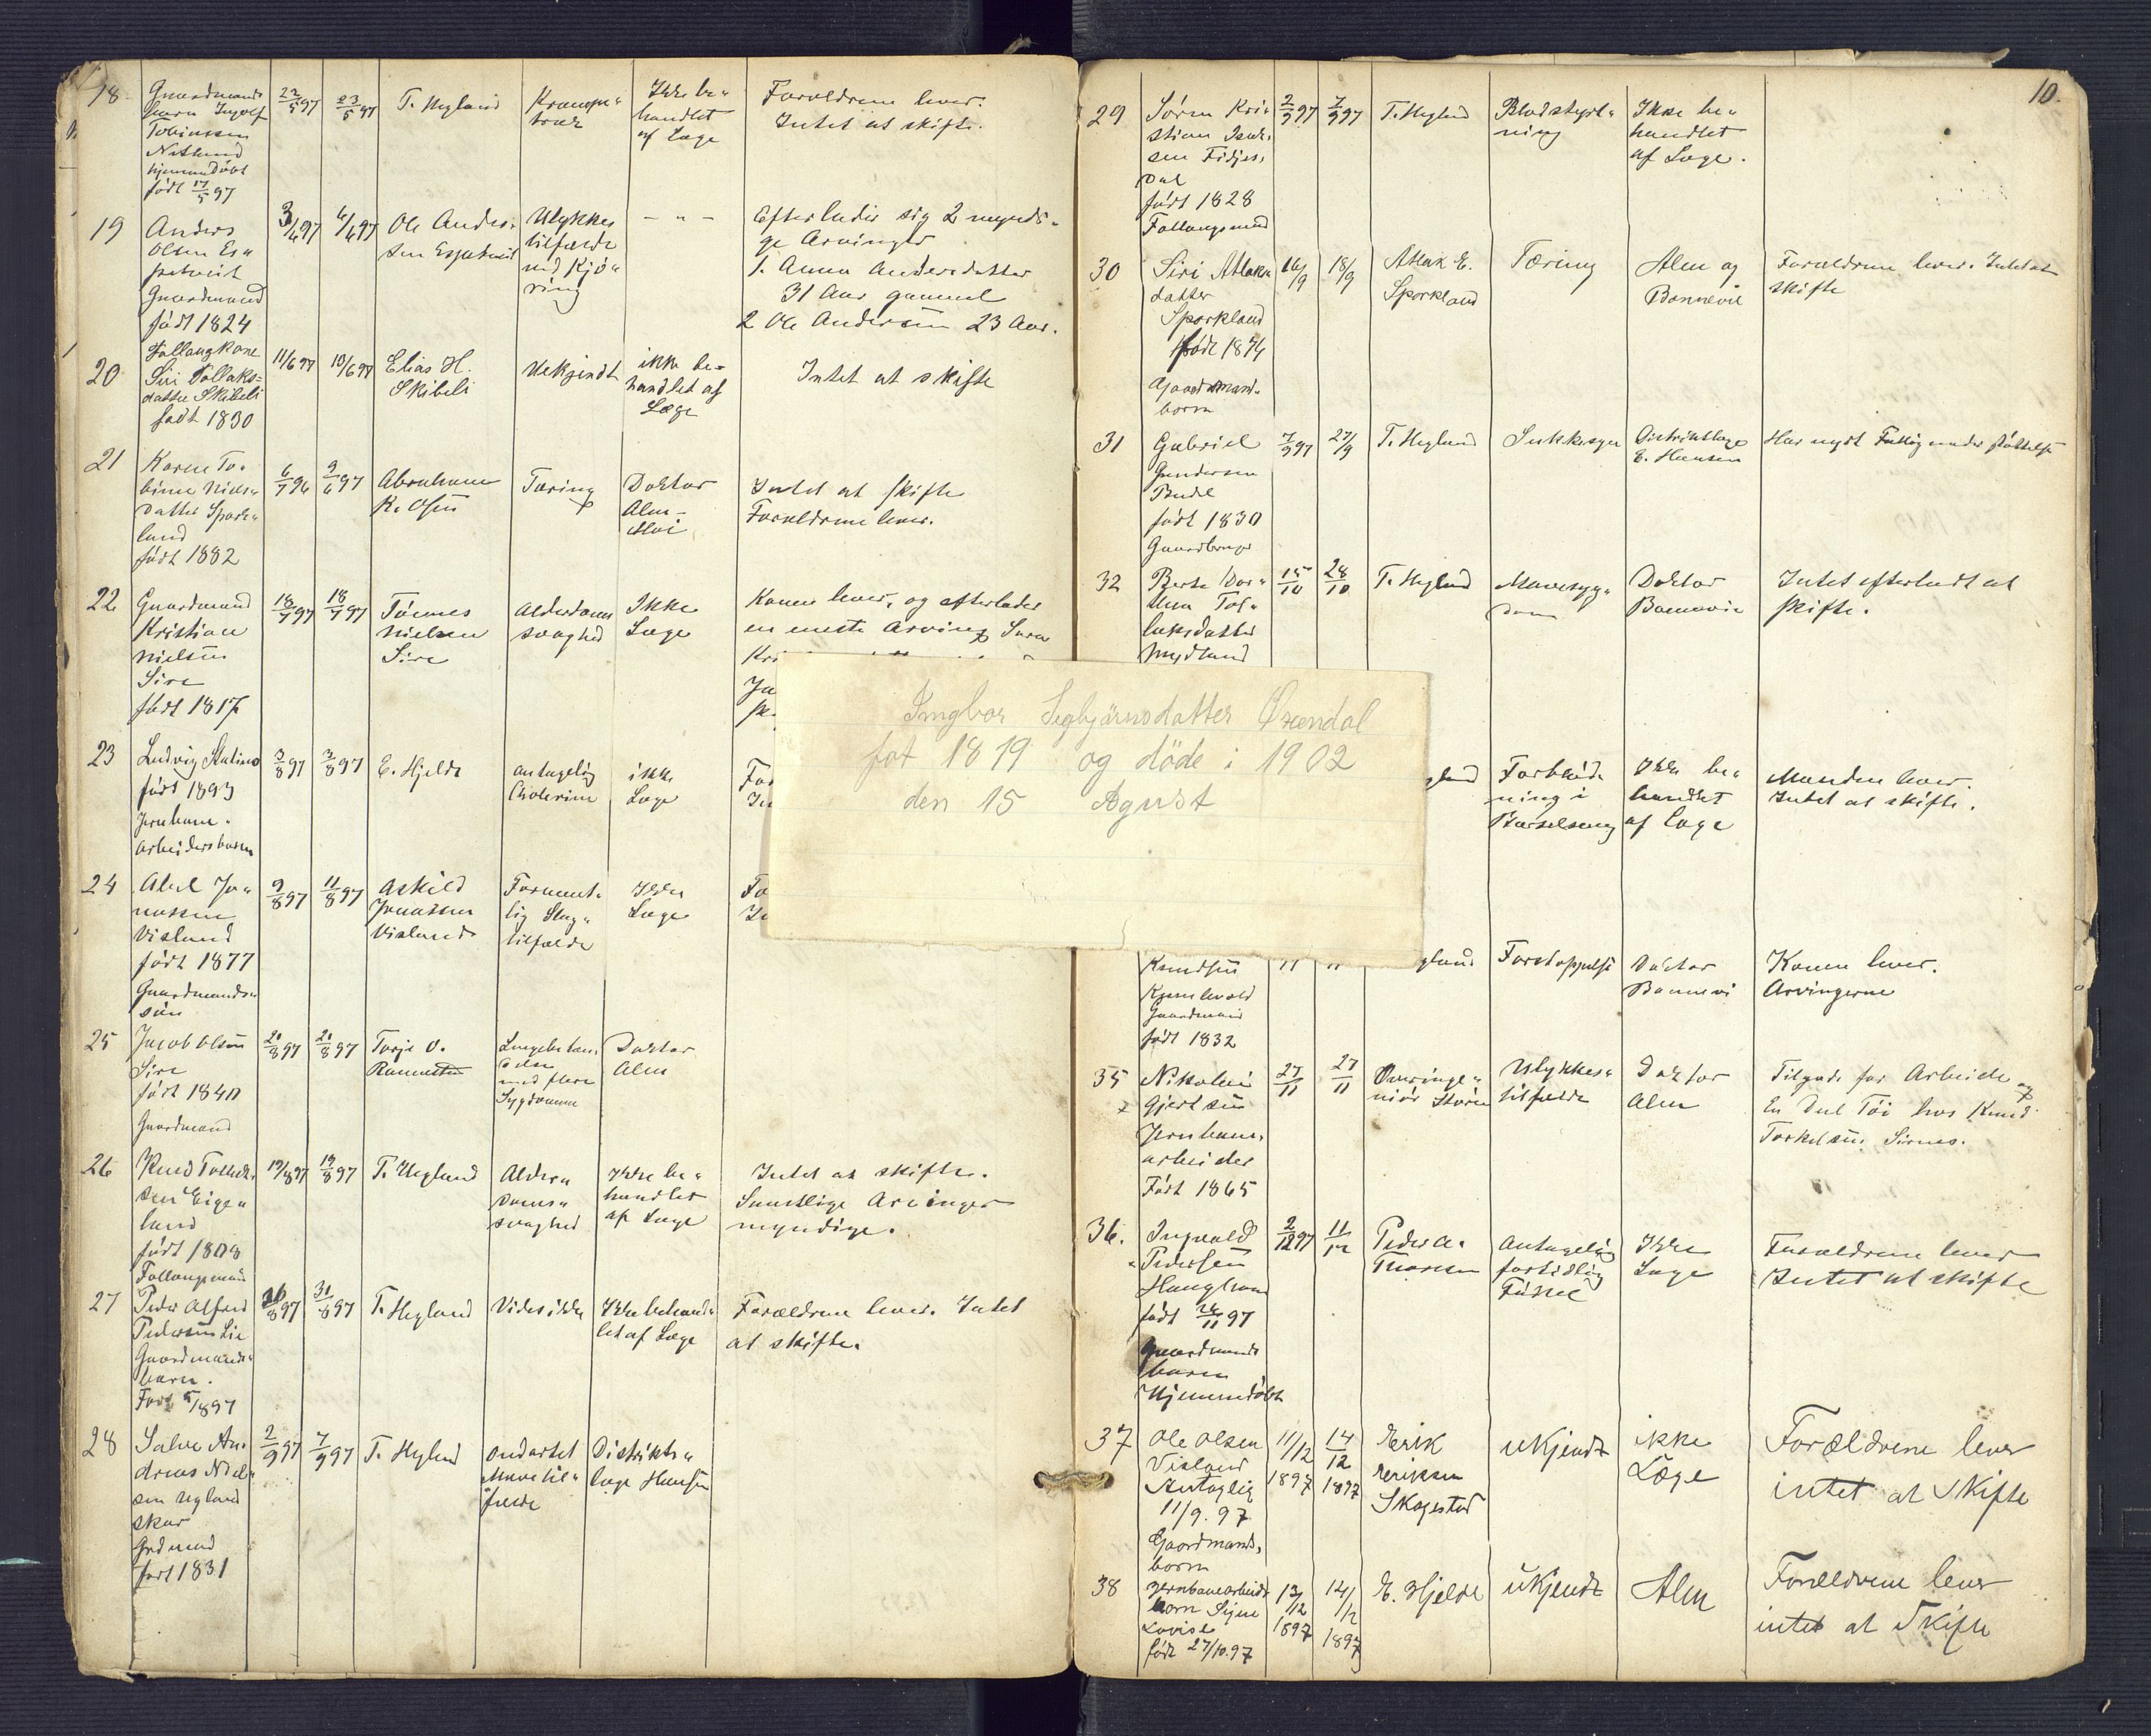 18
Gaardmands
barn Ingolf
Tobiassen
Netland
hjemmedøbt
født 17/5 97
22/5 97
23/5 97
T. Hegland
Krampe„
træk
Ikke be„
handlet
af Læge
Forældrene lever.
Intet at skifte.
19
Anders
Olsen Es„
petveit
Gaardmand
født 1824
3/6 97
4/6 97
Ole Anders„
sen Espetveit
Ulykkes
tilfælde
ved Kjø„
ring
— „ —
Efterlader sig 2 myndi„
ge Arvinger
1. Anna Andersdatter
31 Aar gammel
2 Ole Andersen 23 Aar.
20
Follaugkone
Siri Tollaks=
datter Skibeli
født 1830
11/6 97
13/6 97
Elias H.
Skibeli
Uekjendt
ikke be=
handlet af
Læge
Intet at skifte
21
Karen To„
bine Niels„
datter Spork„
land
født 1882
6/7 96
9/6 97
Abraham
K. Osen
Tæring
Doktor
Alm–
Moi
Intet at skifte
Forældrene lever.
22
Gaardmand
Kristian
Nielsen
Sire
født 1817
18/7 97
18/7 97
Tønnes
Nielsen
Sire
Alderdoms
svaghed
Ikke
Læge
Konen lever, og efterlader
en eneste Arving Sara
Kri
Ja
sk.
23
Ludvig Stalino
født 1893
Jernbane„
arbeidersbarn
3/8 97
3/8 97
E. Hjelde
antagelig
Cholerine
ikke
Læge
For
In
24
Abel Jo„
nassen
Visland
født 1877
Gaardmands„
søn
9/8 97
11/8 97
Askild
Jonassen
Visland
Forment„
lig Slag„
tilfælde
Ikke
Læge
Fo
In
25
Jacob Olsen
Sire
født 1840
Gaardmand
20/8 97
20/8 97
Terje O.
Lungebetæn„
delse
med flere
Sygdomme
Doktor
Alm
26
Knud Tolleks„
sen Eige„
land
født 1808
Follaugsmand
19/8 97
19/8 97
T. Hegland
Alder„
doms„
svaghed
Ikke be„
handlet
af Læge
Intet at skifte.
Samtlige Arvinger
myndige.
27
Peder Alfred
Pedersen Lie
Gaardmands„
barn.
Født 5/8 97
26/8 97
31/8 97
T. Hegland
Vides ikke
Ikke behand„
let af Læge
Forældrene lever. Intet
at skifte.
28
Salve An„
dreas Niel„
sen Ugland
skar
Grdmand
født 1831
2/9 97
7/9 97
T. Hegland
Ondartet
Mavetil„
fælde
Distrikts„
læge Hansen
10.
29
Søren Kri„
stian Isak„
sen Fidjes„
dal
født 1828
Follaugsmand
2/9 97
7/9 97
T. Hegland
Blodstyrt„
ning
Ikke be„
handlet
af Læge.
30
Siri Atlaks
datter
Sporkland
født 1874
Gaardmand„
barn
16/9
18/9
Atlak E.
Sporkland
Tæring
Alm og
Bonnevie
Forældrene lever. Intet at
skifte
31
Gabriel
Gundersen
Budel
født 1830
Gaardbruger
7/9 97
27/9
T. Hegland
Sukkersyge
Distriktslæge
E. Hansen
Har nydt Fattigunderstøttelse
32
Berte Dor„
thea Tol„
laksdatter
Mydland
15/10
28/10
T. Hegland
Mavesyg„
dom
Doktor
Bonnevie
Intet efterladt at
skifte.
Ingbor Segbjørnsdatter Øxendal
føt 1819 og døde i 1902
den 15 Agust
gland
Forblød„
ning i
Barselseng
Ikke be„
handlet
af Læge
Manden lever.
Intet at skifte.
Knudsen
Kvinlavold
Gaardmand
født 1832
11
11
gland
Forstoppelse
Doktor
Bonnevi
Konen lever.
Arvingerne
35
Nikolai
Gjertsen
Jernbane„
arbeider
Født 1865
27/11
27/11
Overinge„
niør Støren
Ulykkes„
tilfælde
Doktor
Alm
Tilgode for Arbeide og
En Del Tøi hos Knud
Torkelsen Sirnes.
36.
Ingvald
Pedersen
Haughom
født 24/11 97
Gaardmands
barn
Hjemmedøbt
2/12 97
11/12
Peder A.
Thorsen
Antagelig
fortidlig
Fødsel
Ikke
Læge
Forældrene lever
Intet at skifte
37
Ole Olsen
Visland
Antaglig
11/9. 97
Gaardmands„
barn
11/12
1897
14/12
1897
Erik
Eriksen
Skogestad
ukjendt
ikke
Læge
Forældrene lever
intet at Skifte
38
Jernbanearbeider
barn Signe
Lovise
født 27/10.97
13/12
1897
14/12
1897
E. Hjelde
ukjendt
Alm
Forældrene lever
intet at Skifte